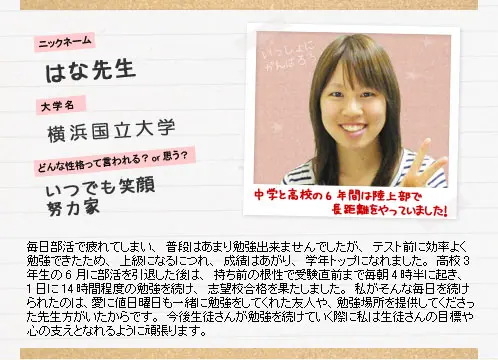 ニックネーム
はな先生
大学名
横浜国立大学
どんな性格って言われる？or思う？
いつでも笑顔
努力家
いっしょに
がんばろう
中学と高校の6年間は陸上部で
長距離をやっていました!
毎日部活で疲れてしまい、普段はあまり勉強出来ませんでしたが、テスト前に効率よく
勉強できたため、上級になるにつれ、成績はあがり、学年トップになれました。高校3
年生の6月に部活を引退した後は、持ち前の根性で受験直前まで毎朝4時半に起き、
1日に14時間程度の勉強を続け、志望校合格を果たしました。私がそんな毎日を続け
られたのは、愛に値日曜日も一緒に勉強をしてくれた友人や、勉強場所を提供してくださっ
た先生方がいたからです。今後生徒さんが勉強を続けていく際に私は生徒さんの目標や
心の支えとなれるように頑張ります。